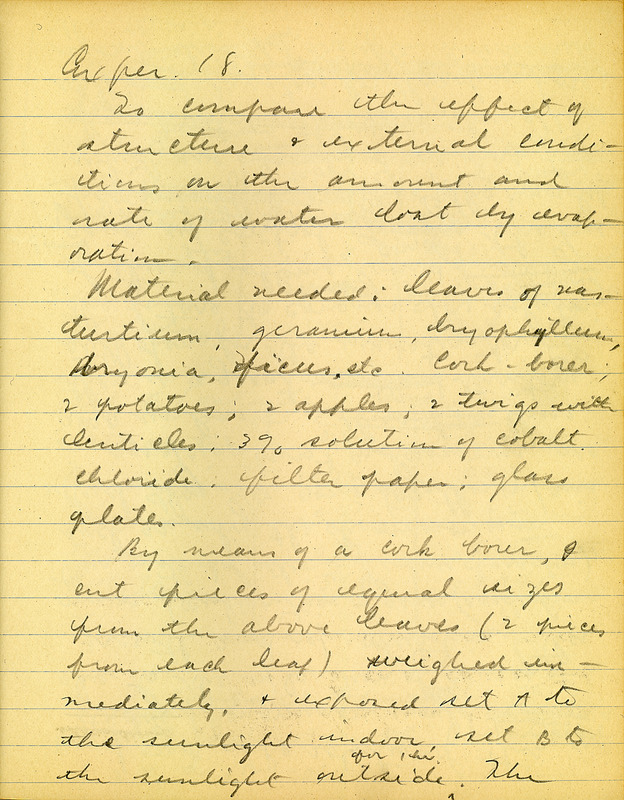 Exper. 18.
To compare the effect of
structure & external condi-
tions on the amount and
rate of water lost by evap-
oration.
Material needed: leaves of nas-
turtium, geranium, bryophyllum,
Bryonia, ficus, etc. Cork-borer;
2 potatoes; 2 apples; 2 twigs with
lenticles; 3% solution of cobalt
chloride; filter paper; glass
plates.
By means of a cork borer, I
cut pieces of equal sizes
from the above leaves (2 pieces
from each leaf) weighed im-
mediately, & exposed set A to
the sunlight indoor, set B to
for 1 hr.
the sunlight outside. The